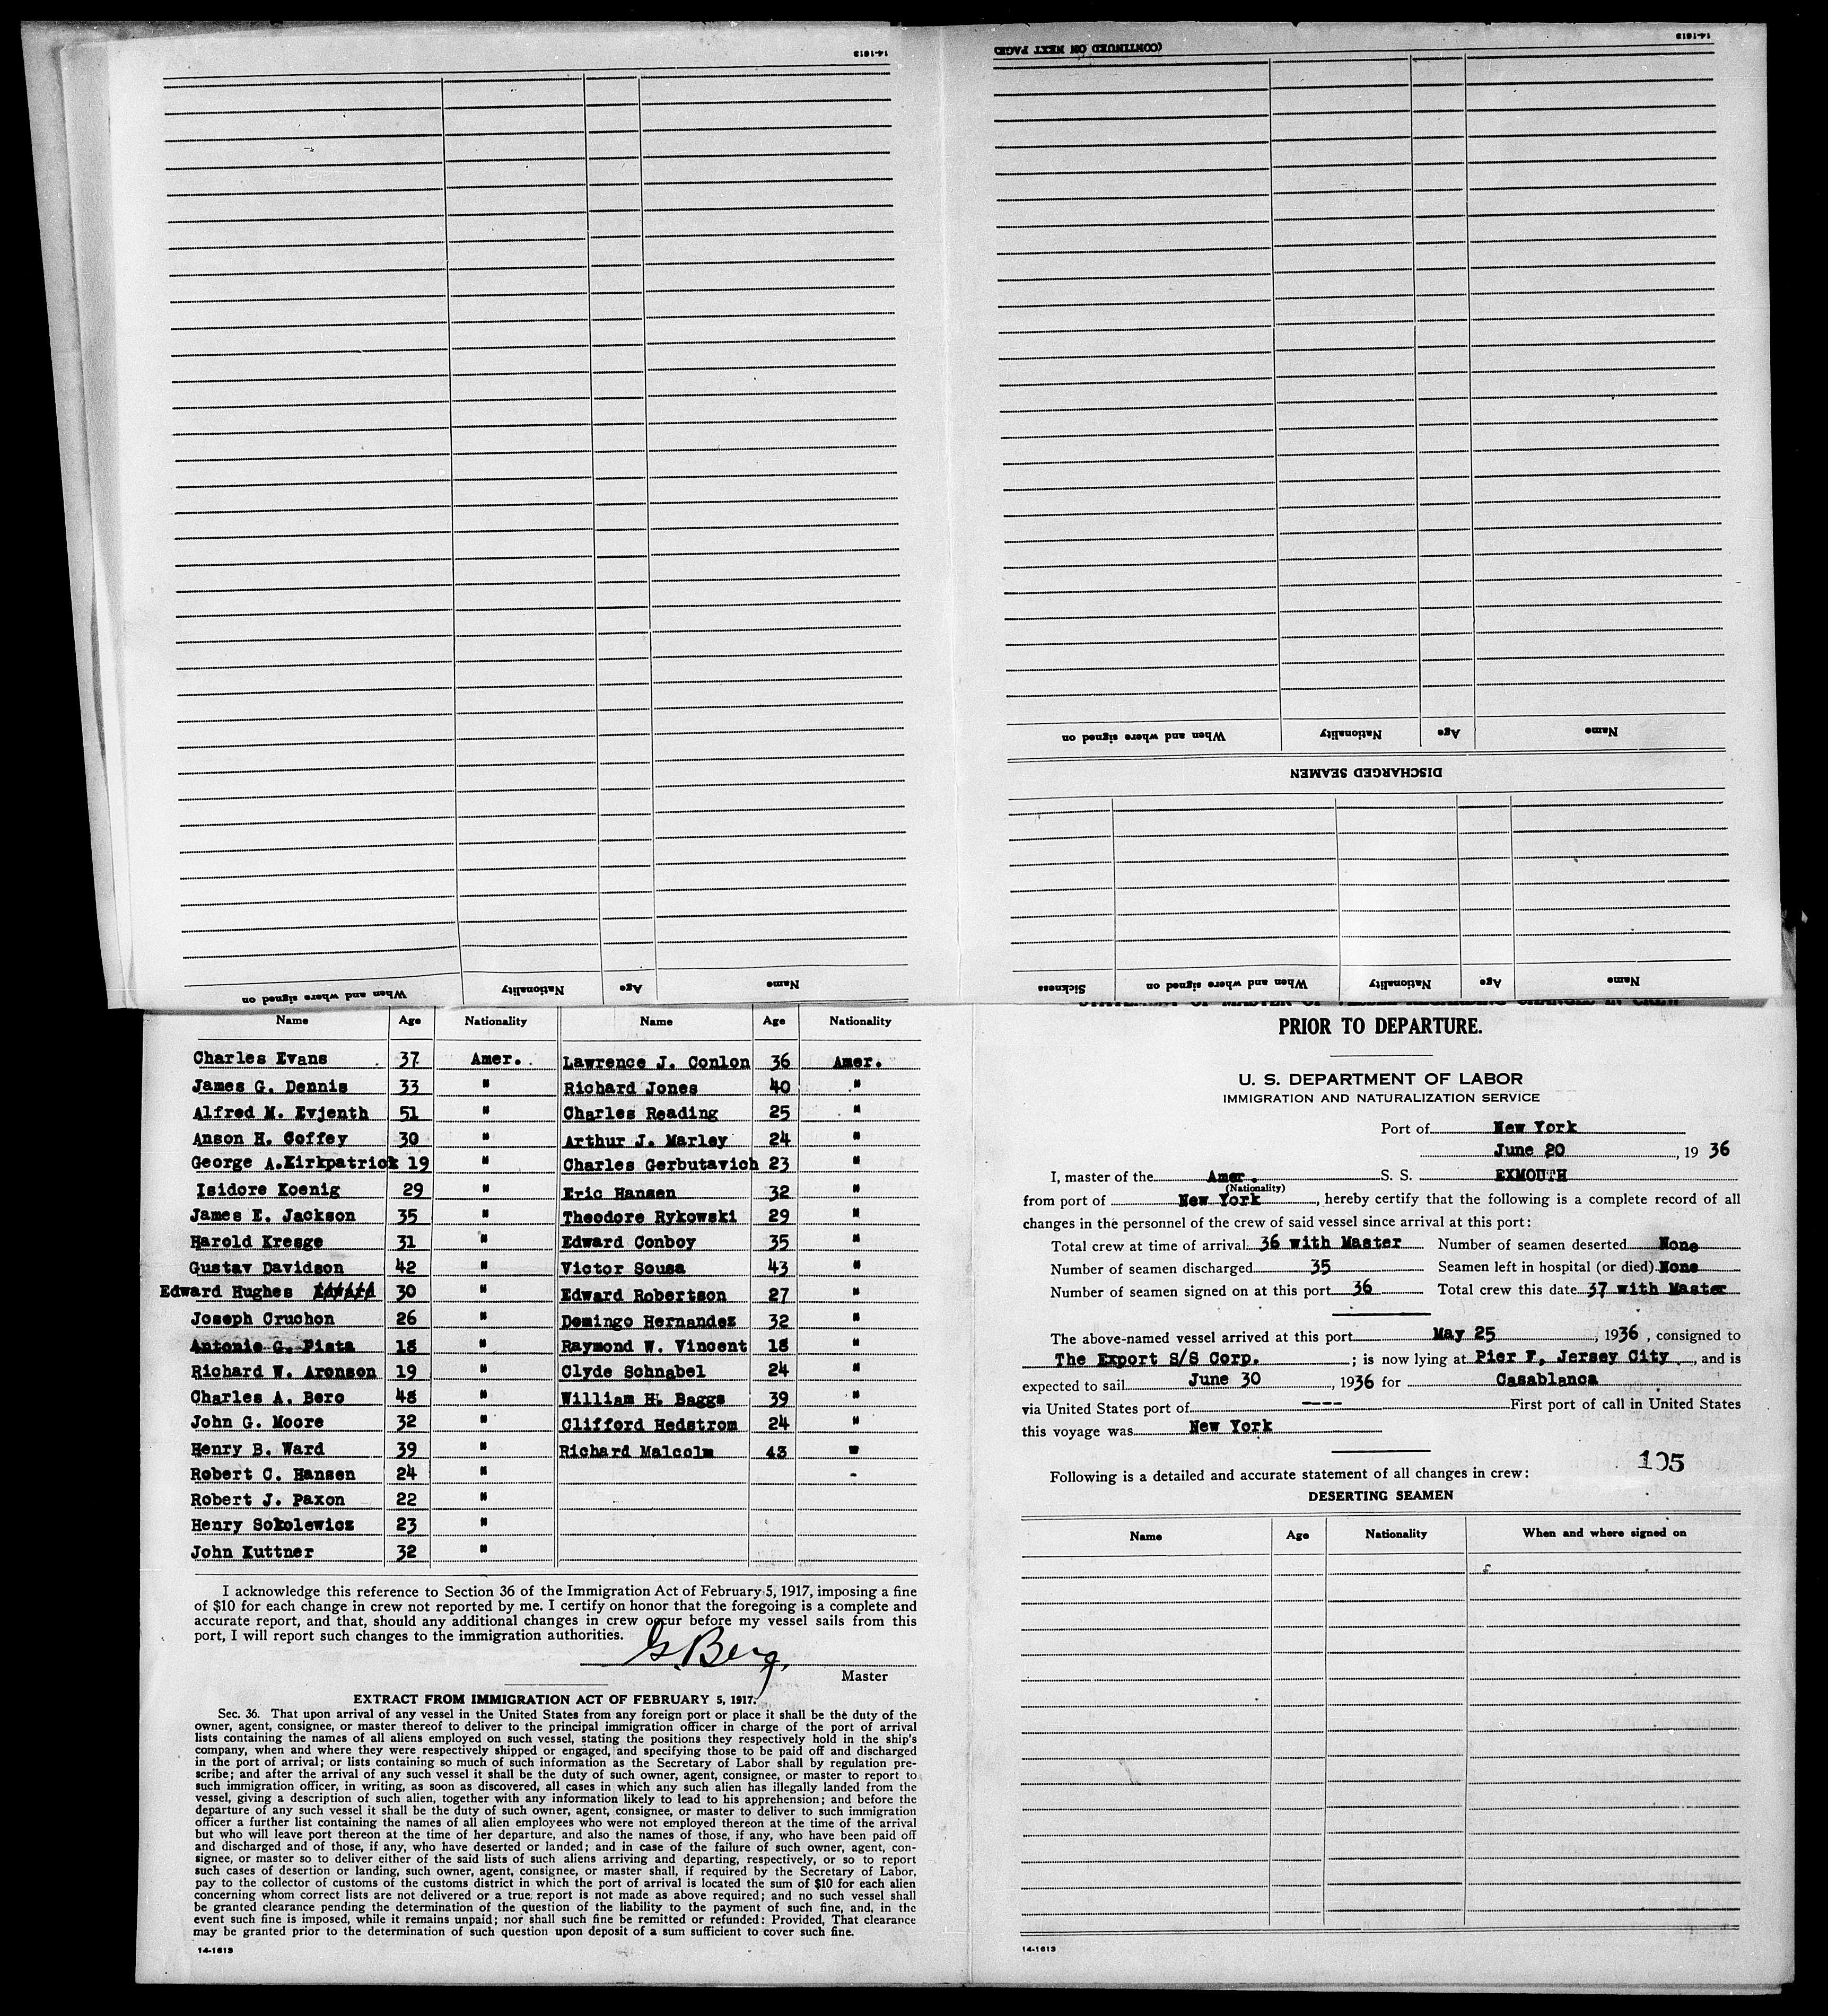 14-1613
When and where signed on Nationality Age Name
(CONTINUED ON NEXT PAGE)
14-1613
When and where signed on Nationality Age Name
DISCHARGED SEAMEN
Sickness When and where signed on Nationality Age Name
Name Age Nationality Name Age Nationality
Charles Evans 37 Amer. Lawrence J. Conlon 36 Amer.
James G. Dennis 33 " Richard Jones 40 "
Alfred M. Evjenth 51 " Charles Reading 25 "
Anson H. Coffey 30 " Arthur J. Marley 24 "
George A.Kirkpatrick 19 " Charles Gerbutavich 23 "
Isidore Koenig 29 " Eric Hansen 32 "
James E. Jackson 35 " Theodore Rykowski 29 "
Harold Kresge 31 " Edward Conboy 35 "
Gustav Davidson 42 " Victor Sousa 43 "
Edward Hughes 30 " Edward Robertson 27 "
Joseph Cruchon 26 " Domingo Hernandez 32 "
Antonio G. Pista 18 " Raymond W. Vincent 18 "
Richard W. Aronson 19 " Clyde Schnabel 24 "
Charles A. Bero 48 " William H. Baggs 39 "
John G. Moore 32 " Clifford Hedstrom 24 "
Henry B. Ward 39 " Richard Malcolm 43 "
Robert C. Hansen 24 "
Robert J. Paxon 22 "
Henry Sokolewicz 23 "
John Kuttner 32 "
I acknowledge this reference to Section 36 of the Immigration Act of February 5, 1917, imposing a fine
of $10 for each change in crew not reported by me. I certify on honor that the foregoing is a complete and
accurate report, and that, should any additional changes in crew occur before my vessel sails from this
port, I will report such changes to the immigration authorities.
G. Berg,
Master
EXTRACT FROM IMMIGRATION ACT OF FEBRUARY 5, 1917.
Sec. 36. That upon arrival of any vessel in the United States from any foreign port or place it shall be the duty of the
owner, agent, consignee, or master thereof to deliver to the principal immigration officer in charge of the port of arrival
lists containing the names of all aliens employed on such vessel, stating the positions they respectively hold in the ship's
company, when and where they were respectively shipped or engaged, and specifying those to be paid off and discharged
in the port of arrival; or lists containing so much of such information as the Secretary of Labor shall by regulation pre-
scribe; and after the arrival of any such vessel it shall be the duty of such owner, agent, consignee, or master to report to
such immigration officer, in writing, as soon as discovered, all cases in which any such alien has illegally landed from the
vessel, giving a description of such alien, together with any information likely to lead to his apprehension; and before the
departure of any such vessel it shall be the duty of such owner, agent, consignee, or master to deliver to such immigration
officer a further list containing the names of all alien employees who were not employed thereon at the time of the arrival
but who will leave port thereon at the time of her departure, and also the names of those, if any, who have been paid off
and discharged and of those, if any, who have deserted or landed; and in case of the failure of such owner, agent, con-
signee, or master so to deliver either of the said lists of such aliens arriving and departing, respectively, or so to report
such cases of desertion or landing, such owner, agent, consignee, or master shall, if required by the Secretary of Labor,
pay to the collector of customs of the customs district in which the port of arrival is located the sum of $10 for each alien
concerning whom correct lists are not delivered or a true report is not made as above required; and no such vessel shall
be granted clearance pending the determination of the question of the liability to the payment of such fine, and, in the
event such fine is imposed, while it remains unpaid; nor shall such fine be remitted or refunded: Provided, That clearance
may be granted prior to the determination of such question upon deposit of a sum sufficient to cover such fine.
14-1613
STATEMENT OF MASTER OF VESSEL REGARDING CHANGES IN CREW
PRIOR TO DEPARTURE.
U. S. DEPARTMENT OF LABOR
IMMIGRATION AND NATURALIZATION SERVICE
Port of New York
June 20, 19 36
I, master of the Amer. S. S. EXMOUTH
(Nationality)
from port of New York, hereby certify that the following is a complete record of all
changes in the personnel of the crew of said vessel since arrival at this port:
Total crew at time of arrival 36 with Master Number of seamen deserted None
Number of seamen discharged 35 Seamen left in hospital (or died) None
Number of seamen signed on at this port 36 Total crew this date 37 with Master
The above-named vessel arrived at this port May 25, 1936, consigned to
The Export S/S Corp.; is now lying at Pier F, Jersey City, and is
expected to sail June 30, 1936 for Casablanca
via United States port of ---- First port of call in United States
this voyage was New York
105
Following is a detailed and accurate statement of all changes in crew:
DESERTING SEAMEN
Name Age Nationality When and where signed on
14-1613